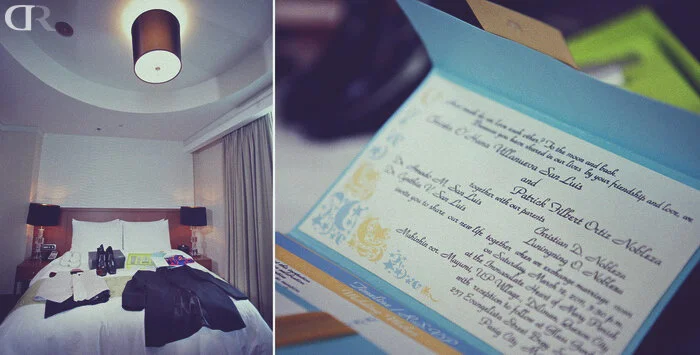 DR
How much do we love each other? To the moon and back.
Because you have shared in our lives by your friendship and love, we,
Villanueva San Luis
and
Patrick Filbert Ortiz Nobleza
together with our parents
Dr. Amado M. San Luis
Christian D. Nobleza
Dr. Cynthia V. San Luis
Luningning O. Nobleza
invite you to share our new life together when we exchange marriage vows
on Saturday, March
at the Immaculate Heart of Mary Parish
Mahinhin cor. Mayumi, UP Village, Diliman, Quezon City
with reception to follow at Glass Garden
257 Evangelista Street
Pasig City